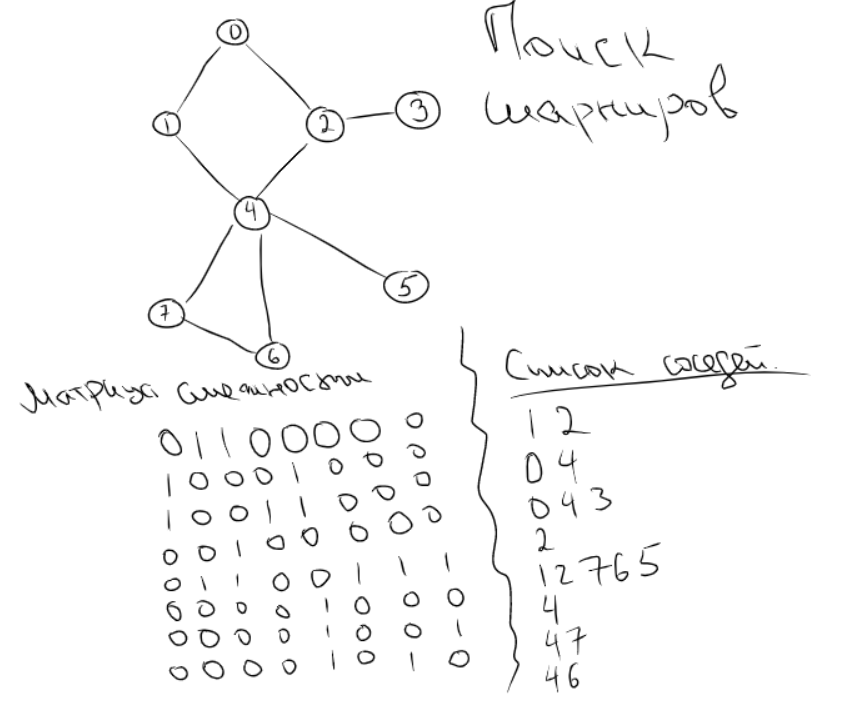 Поиск
шарниров
0
1
2
3
4
5
7
6
Матрица смежности
0 1 1 0 0 0 0 0
1 0 0 0 1 0 0 0
1 0 0 1 1 0 0 0
0 0 1 0 0 0 0 0
0 1 1 0 0 1 1 1
0 0 0 0 1 0 0 0
0 0 0 0 1 0 0 1
0 0 0 0 1 0 1 0
Список соседей.
1 2
0 4
0 4 3
2
1 2 7 6 5
4
4 7
4 6